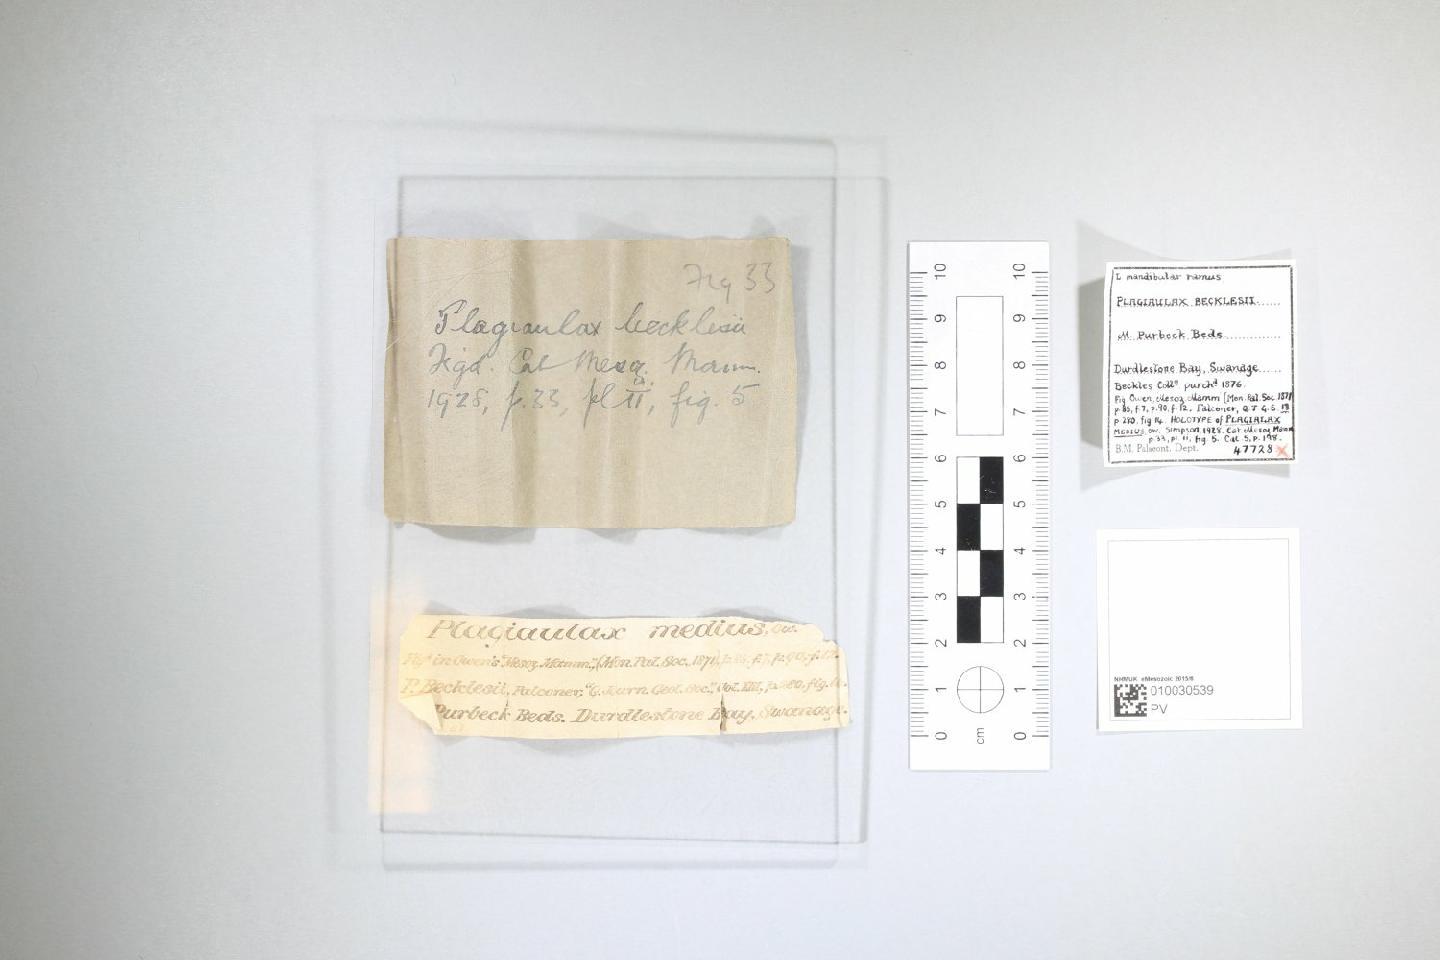 Fig 33
Plagiaulax becklesii
Figd. Cat Mesoz. Mamm.
1928, p.33, pl II, fig. 5
Plagiaulax medius, Ow.
Figd in Owen's "Mesoz. Mamm." (Mon. Pal. Soc., 1871), p. 85, f. 7, p. 90, f. 12.
P. Becklesii, Falconer, "Q. Journ. Geol. Soc.", Vol. XIII, p. 280, fig. 14.
Purbeck Beds. Durdlestone Bay, Swanage.
10 10
9 9
8 8
7 7
6 6
5 5
4 4
3 3
2 2
1 1
0 cm 0
L mandibular ramus
PLAGIAULAX BECKLESII
M. Purbeck Beds
Durdlestone Bay, Swanage
Beckles Colln purchd 1876.
Fig Owen, Mesoz. Mamm [Mon. Pal. Soc. 1871
p.85, f.7, p.90, f.12, Falconer, Q J G S 13
p 280, fig 14. HOLOTYPE of PLAGIAULAX
MEDIUS, Ow. Simpson, 1928. Cat. Mesoz. Mamm
p 33, pl. II, fig. 5. Cat. 5, p. 198.
B.M. Palæont. Dept. 47728 X
NHMUK eMesozoic 2015/6
010030539
PV